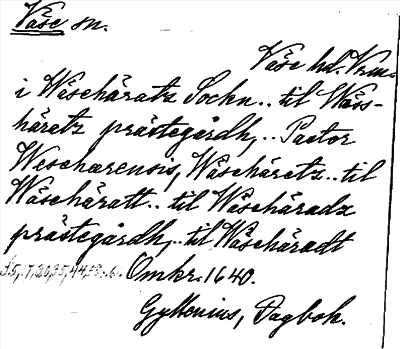 Väse sn.
Väse hd. Vrm.
i Wäsehäratz Sochn.. til Wäse-
häratz prästegårdh,.. Pastor
Wesehærensis, Wäsehäretz.. til
Wäsehäratt.. til Wäsehäradz
prästegårdh,.. til Wäsehäradt
Omkr. 1640.
Gyllenius, Dagbok.